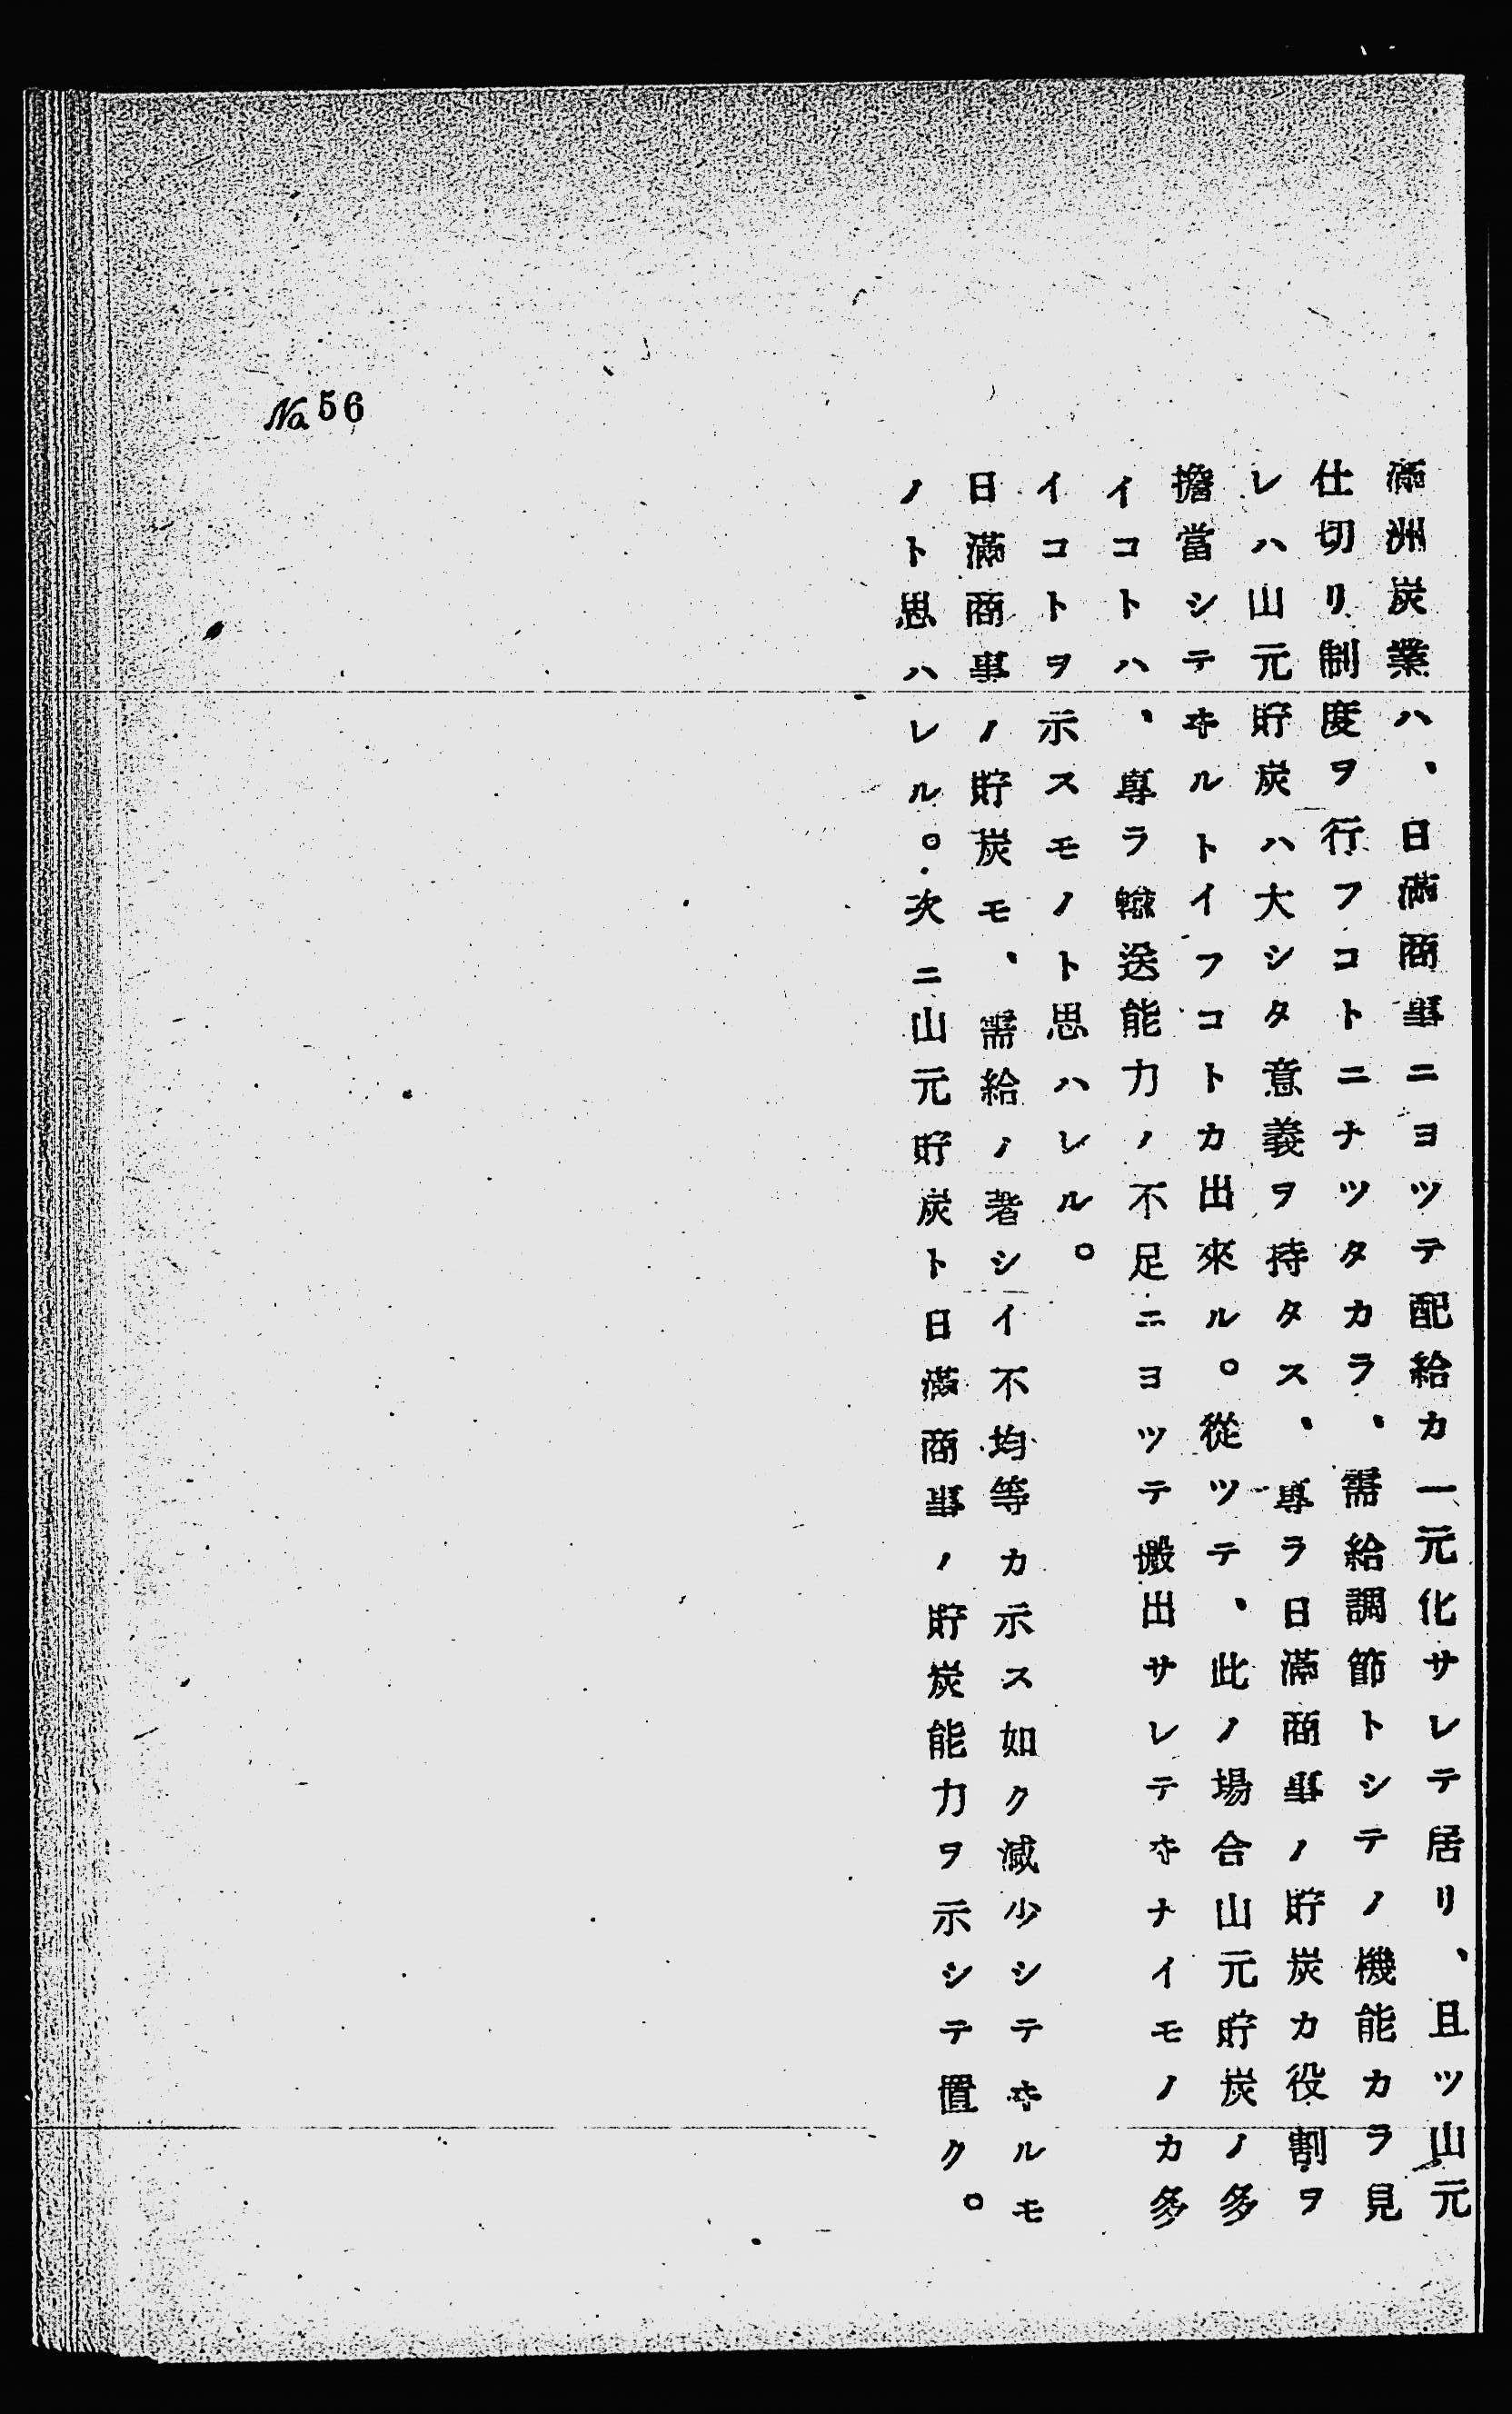 滿洲炭業ハ、日滿商事ニヨツテ配給カ一元化サレテ居リ、且ツ山元
仕切リ制度ヲ行フコトニナツタカラ、需給調節トシテノ機能カラ見
レハ山元貯炭ハ大シタ意義ヲ持タス、專ラ日滿商事ノ貯炭カ役割ヲ
擔當シテヰルトイフコトカ出來ル。從ツテ、此ノ場合山元貯炭ノ多
イコトハ、專ラ輸送能力ノ不足ニヨツテ搬出サレテヰナイモノカ多
イコトヲ示スモノト思ハレル。
日滿商事ノ貯炭モ、需給ノ著シイ不均等カ示ス如ク減少シテヰルモ
ノト思ハレル。次ニ山元貯炭ト日滿商事ノ貯炭能力ヲ示シテ置ク。
No 56